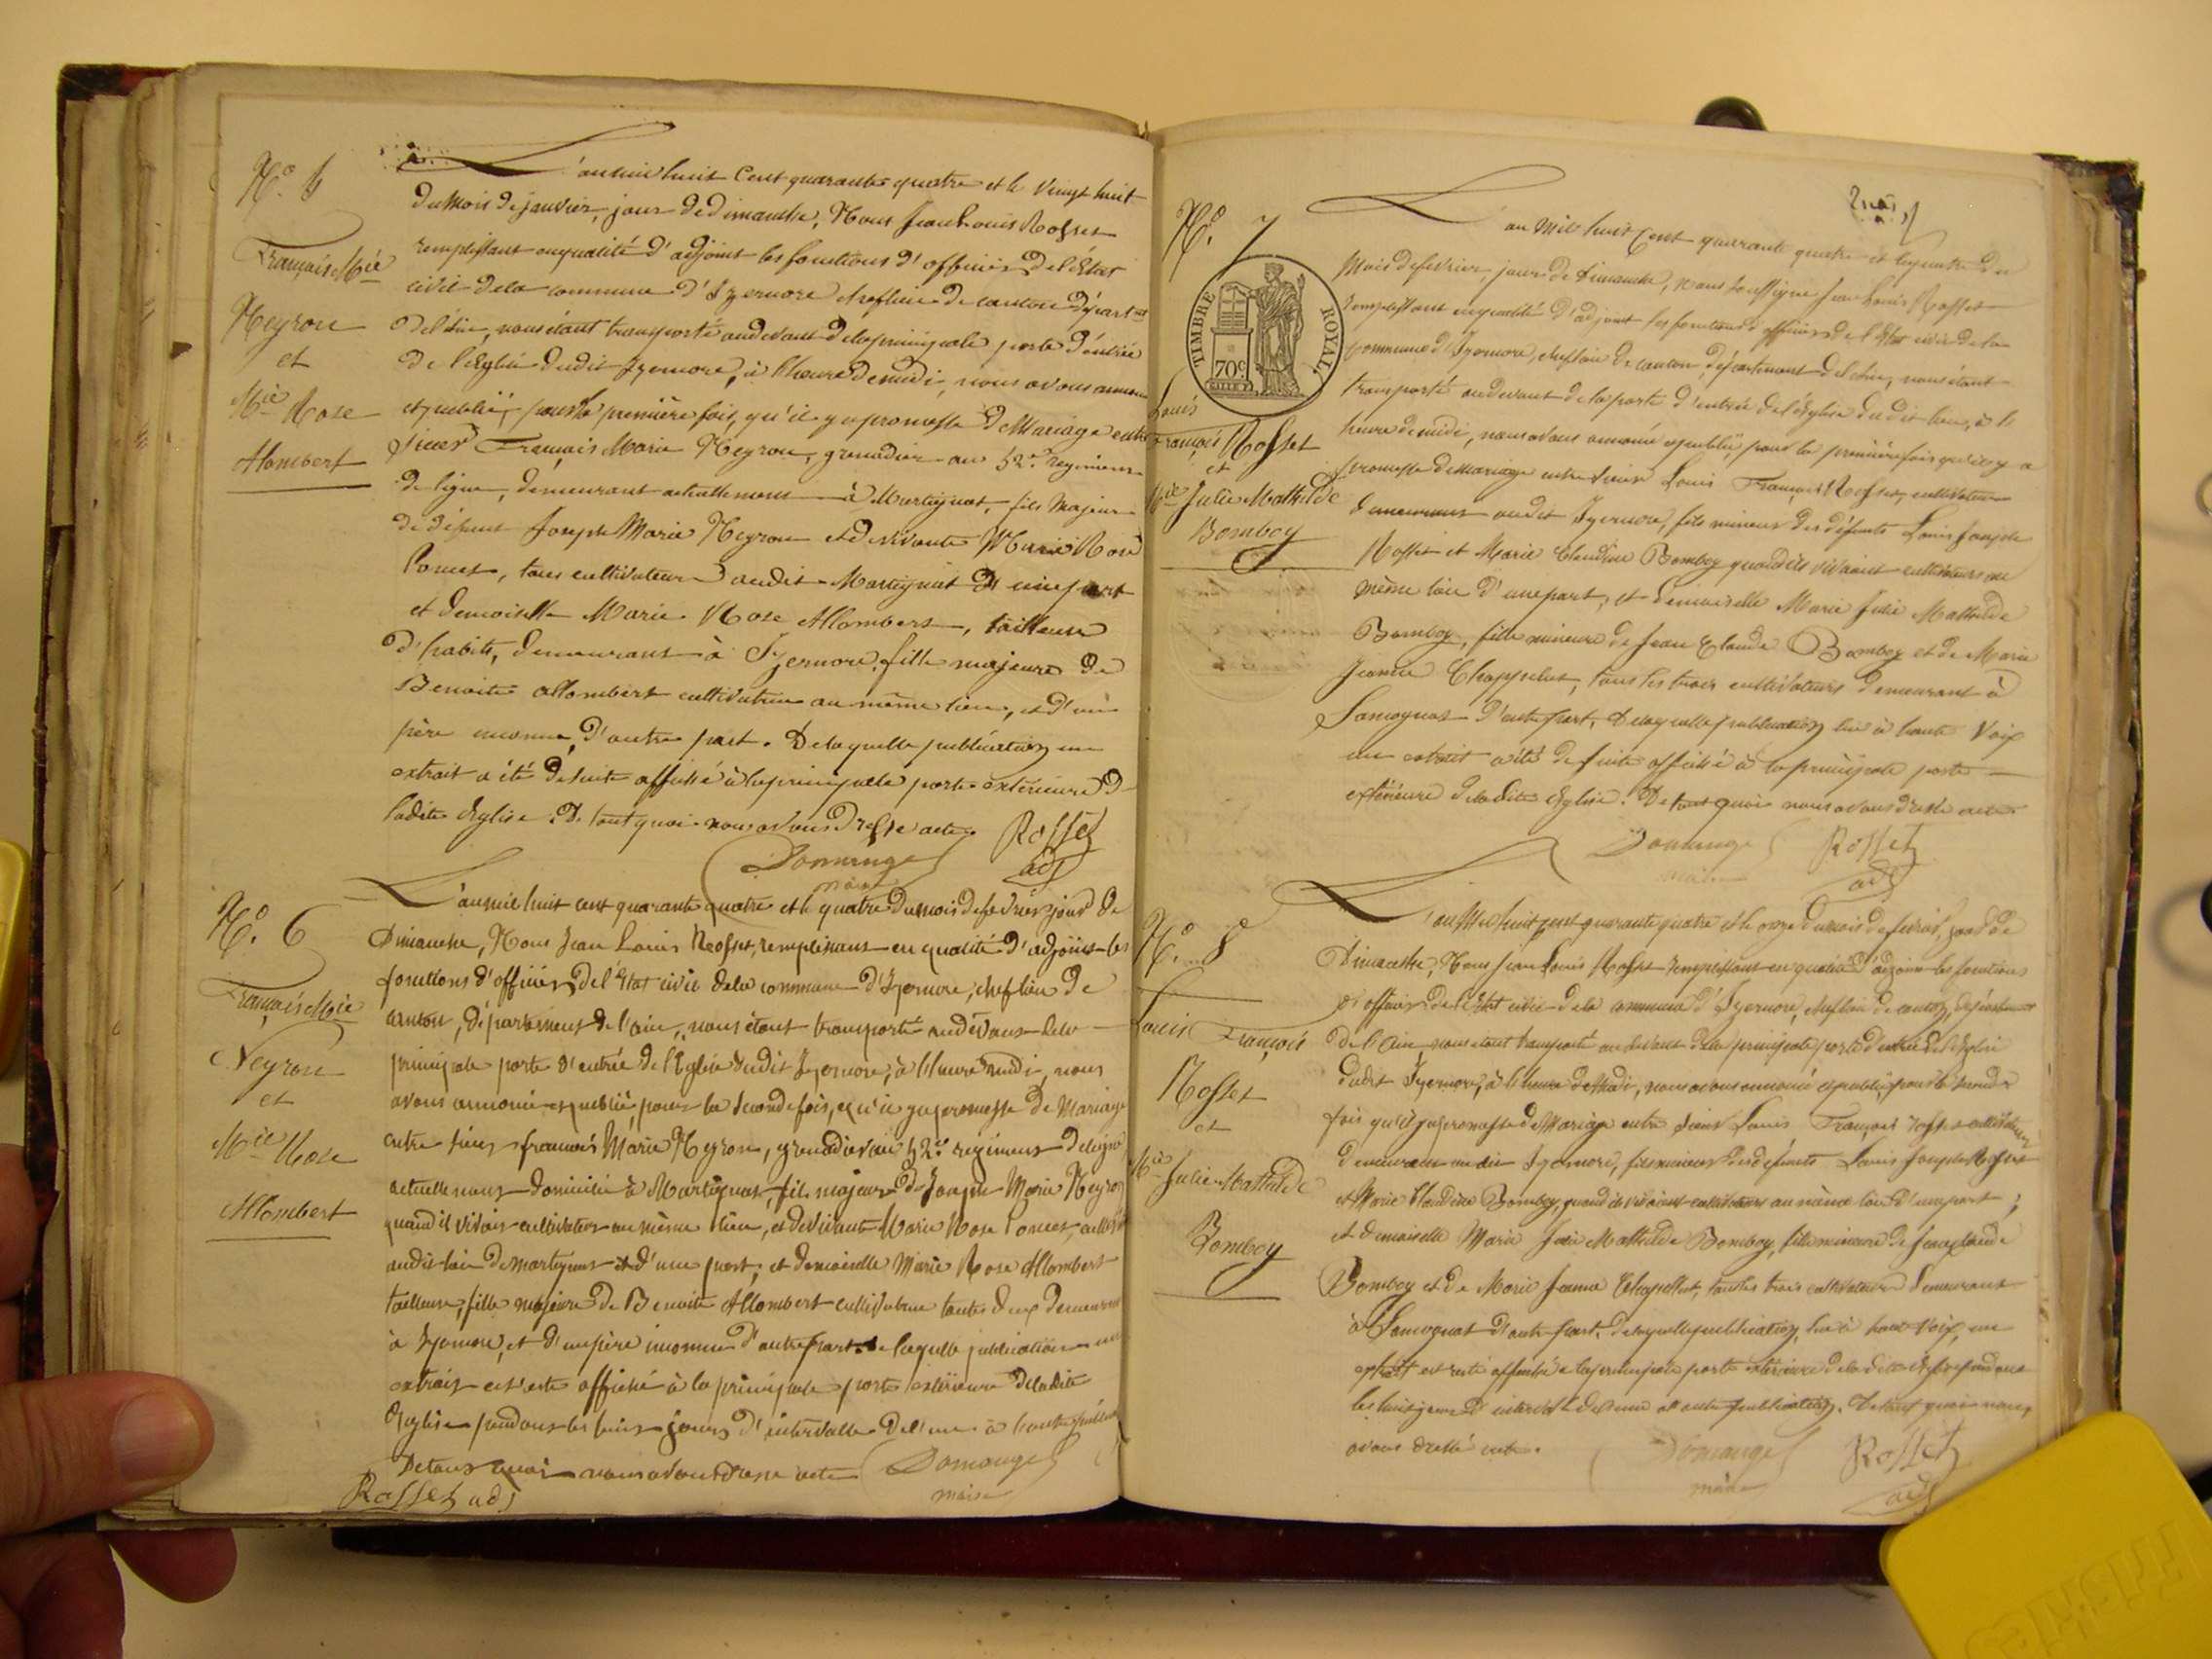 N.o 5
François Mie
Neyron
et
Mie Rose
Allombert
L'an mil huit cent quarante quatre et le vingt huit
du mois de janvier, jour de dimanche, Nous Jean Louis Rosset
remplissant en qualité d'adjoint les fonctions d'officier de l'État
civil de la commune d'Izernore chef lieu de canton départnt
de l'ain, nous étant transporté au devant de la principale porte d'entrée
de l'Eglise dudit Izernore, à l'heure de midi, nous avons annoncé
et publié, pour la première fois, qu'il y a promesse de Mariage entre
sieur François Marie Neyron, grenadier au 52.e regiment
de ligne, demeurant actuellement à Martignat, fils Majeur
de défunt Joseph Marie Neyron et de vivante Marie Rose
Poncet, tous cultivateurs audit Martignat d'une part
et demoiselle Marie Rose Allombert, tailleuse
d'habits, demeurant à Izernore, fille majeure de
Benoite Allombert cultivatrice au même lieu, et d'un
père inconnu, d'autre part. De laquelle publication un
extrait a été de suite affiché à la principale porte extérieure de
ladite Eglise. De tout quoi nous avons dressé acte.
Domange Rosset
maire adj
N.o 6
François Mie
Neyron
et
Mie Rose
Allombert
L'an mil huit cent quarante quatre et le quatre du mois de février jour de
Dimanche, Nous Jean Louis Rosset, remplissant en qualité d'adjoint les
fonctions d'officier de l'État civil de la commune d'Izernore, chef lieu de
canton, département de l'ain, nous étant transporté au devant de la
principale porte d'entrée de l'Eglise dudit Izernore, à l'heure midi, nous
avons annoncé et publié, pour la seconde fois, qu'il y a promesse de Mariage
entre sieur françois Marie Neyron, grenadier au 52.e régiment de ligne
actuellement domicilié à Martignat, fils majeur de Joseph Marie Neyron
quand il vivait cultivateur au même lieu, et de vivante Marie Rose Poncet,
audit lieu de martignat et d'une part, et demoiselle Marie Rose Allombert
tailleuse, fille majeure de Benoite Allombert cultivatrice toutes deux demeurant
à Izernore, et d'un père inconnu d'autre part. De laquelle publication un
extrait est resté affiché à la principale porte extérieure de ladite
Eglise pendant les huit jours d'intervalle de l'une à l'autre
De tout quoi nous avons dressé acte Domange
Rosset adj maire
N.o 7
TIMBRE ROYAL
70c
Louis
François Rosset
et
Mie Julie Mathilde
Bomboy
L'an mil huit cent quarante quatre et le quatre du
Mois de février, jour de Dimanche, nous soussigné Jean Louis Rosset
remplissant en qualité d'adjoint les fonctions d'officier de l'État civil de la
commune d'Izernore, chef lieu de canton, département de l'ain, nous étant
transporté au devant de la porte d'entrée de l'Eglise du dit lieu, à l'
heure de midi, nous avons annoncé et publié, pour la première fois qu'il y a
promesse de mariage entre sieur Louis François Rosset, cultivateur
demeurant audit Izernore, fils mineur des défunts Louis Joseph
Rosset et Marie Claudine Bomboy quand ils vivaient cultivateurs au
même lieu d'une part, et demoiselle Marie Julie Mathilde
Bomboy, fille mineure de Jean Claude Bomboy et de Marie
Jeanne Chappelut, tous les trois cultivateurs demeurant à
Samognat d'autre part. De laquelle publication lue à haute voix
un extrait a été de suite affiché à la principale porte
extérieure de ladite Eglise. De tout quoi nous avons dressé acte
Domange Rosset
maire adj
N.o 8
Louis François
Rosset
et
Mie Julie Mathilde
Bomboy
L'an Mil huit cent quarante quatre et le onze du mois de février, jour de
Dimanche, Nous Jean Louis Rosset remplissant en qualité d'adjoint les fonctions
d'officier de l'État civil de la commune d'Izernore, chef lieu de canton, département
de l'Ain, nous étant transporté au devant de la principale porte d'entrée de l'Eglise
dudit Izernore, à l'heure de Midi, nous avons annoncé et publié, pour la seconde
fois qu'il y a promesse de Mariage entre sieur Louis François Rosset cultivateur
demeurant audit Izernore, fils mineur des défunts Louis Joseph Rosset
et Marie Claudine Bomboy, quand ils vivaient cultivateurs au même lieu d'une part;
et demoiselle Marie Julie Mathilde Bomboy, fille mineure de Jean Claude
Bomboy et de Marie Jeanne Chapellut, tous les trois cultivateurs demeurant
à Samognat d'autre part. De laquelle publication, lue à haute voix, un
extrait est resté affiché à la principale porte extérieure de la dite Eglise pendant
les huit jours d'intervalle de l'une à l'autre publication. De tout quoi nous
avons dressé acte. Domange Rosset
maire adj